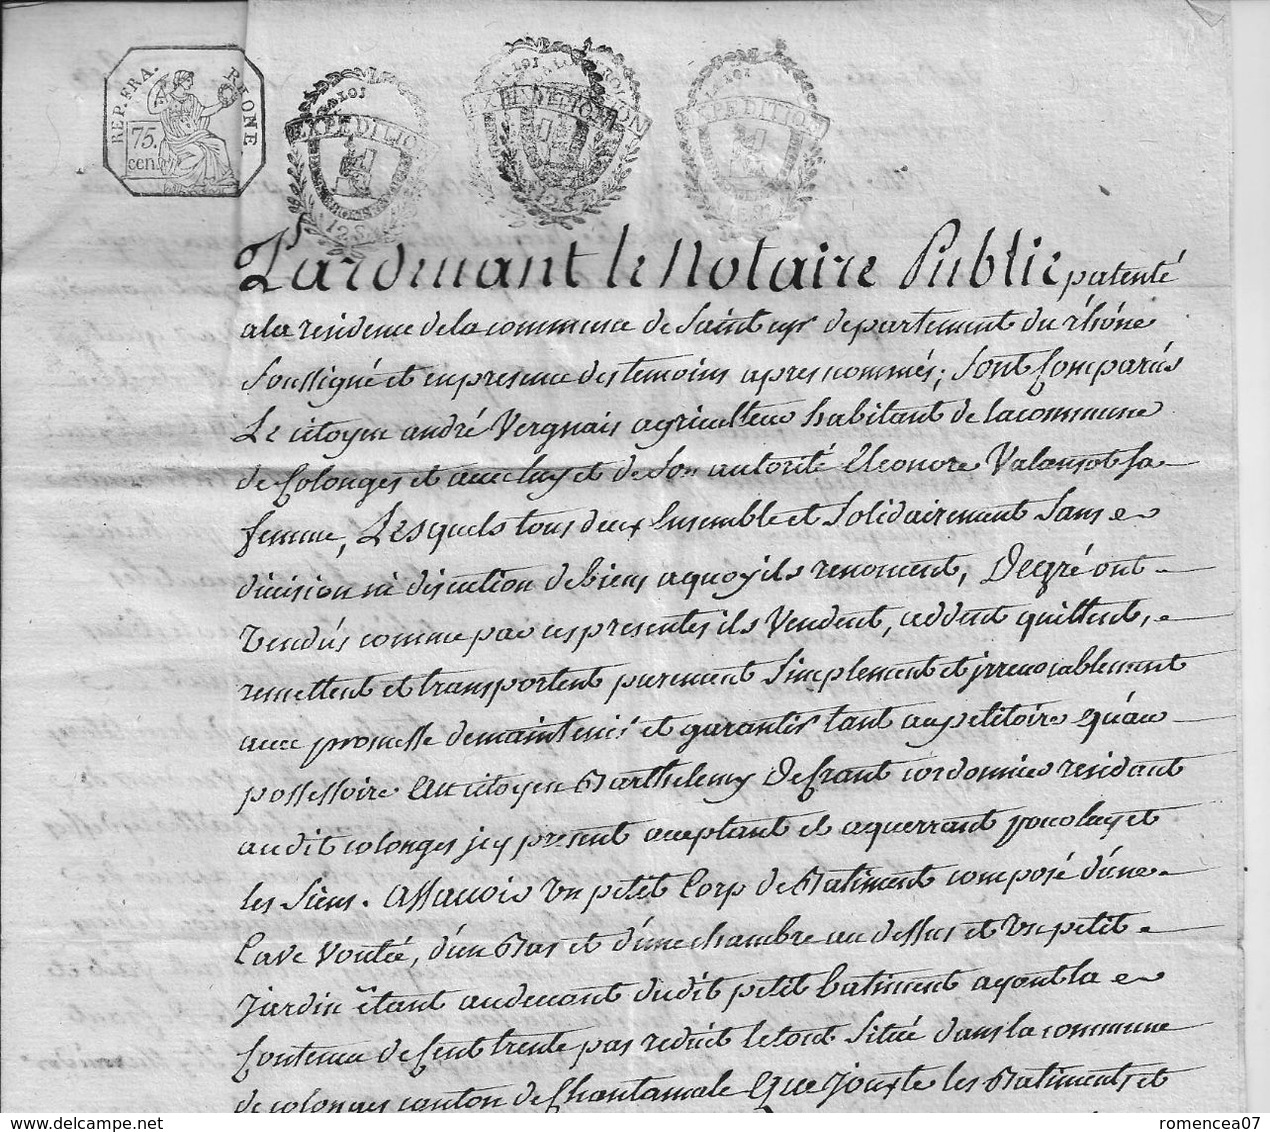 REP. FRA. RHONE
75. cen.
LA LOI
EXPEDITION
12 S.
LA LOI
EXPEDITION
12 S.
LA LOI
EXPEDITION
Pardevant le Notaire Public patenté
a la residence de la commune de Saint cyr departement du rhône
Soussigné et en presence des temoins apres nommés; Sont Comparus
Le citoyen andré Vergnais agriculteur habitant de la commune
de Colonges et avec luy et de Son autorité Eleonore Valansot Sa
femme, Lesquels tous deux Ensemble et Solidairement Sans
division ni discution de biens a quoy ils renoncent, De gré ont
Vendús comme par ces presentes ils Vendent, cèddent quittent,
remettent et transportent purement Simplement et jrrevocablement
avec promesse de maintenir et garantir tant au petitoire qu'au
possessoire Au citoyen Barthelemy Defrant cordonnier residant
audit colonges jcy present acceptant et aquerrant pour luy et
les Siens. Assavoir Un petit Corp de Batiment composé d'une
Cave Voutée, d'un Bas et d'une chambre au dessus et Un petit
Jardin étant au devant dudit petit batiment ayant la
Contenue de Cent trente pas reduit le tout Situé dans la commune
de colonges canton de Chantamale Que Jouxte les Batiments et
romencea07